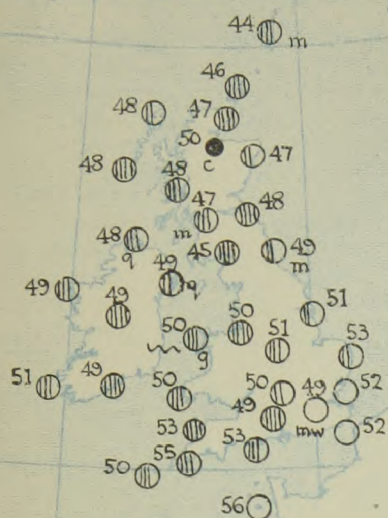 44
m
46
48
47
50
c
47
48
48
47
m
48
48
q
45
49
m
49
49
q
49
50
g
50
51
51
53
51
49
50
50
49
mw
52
49
52
53
53
55
50
56